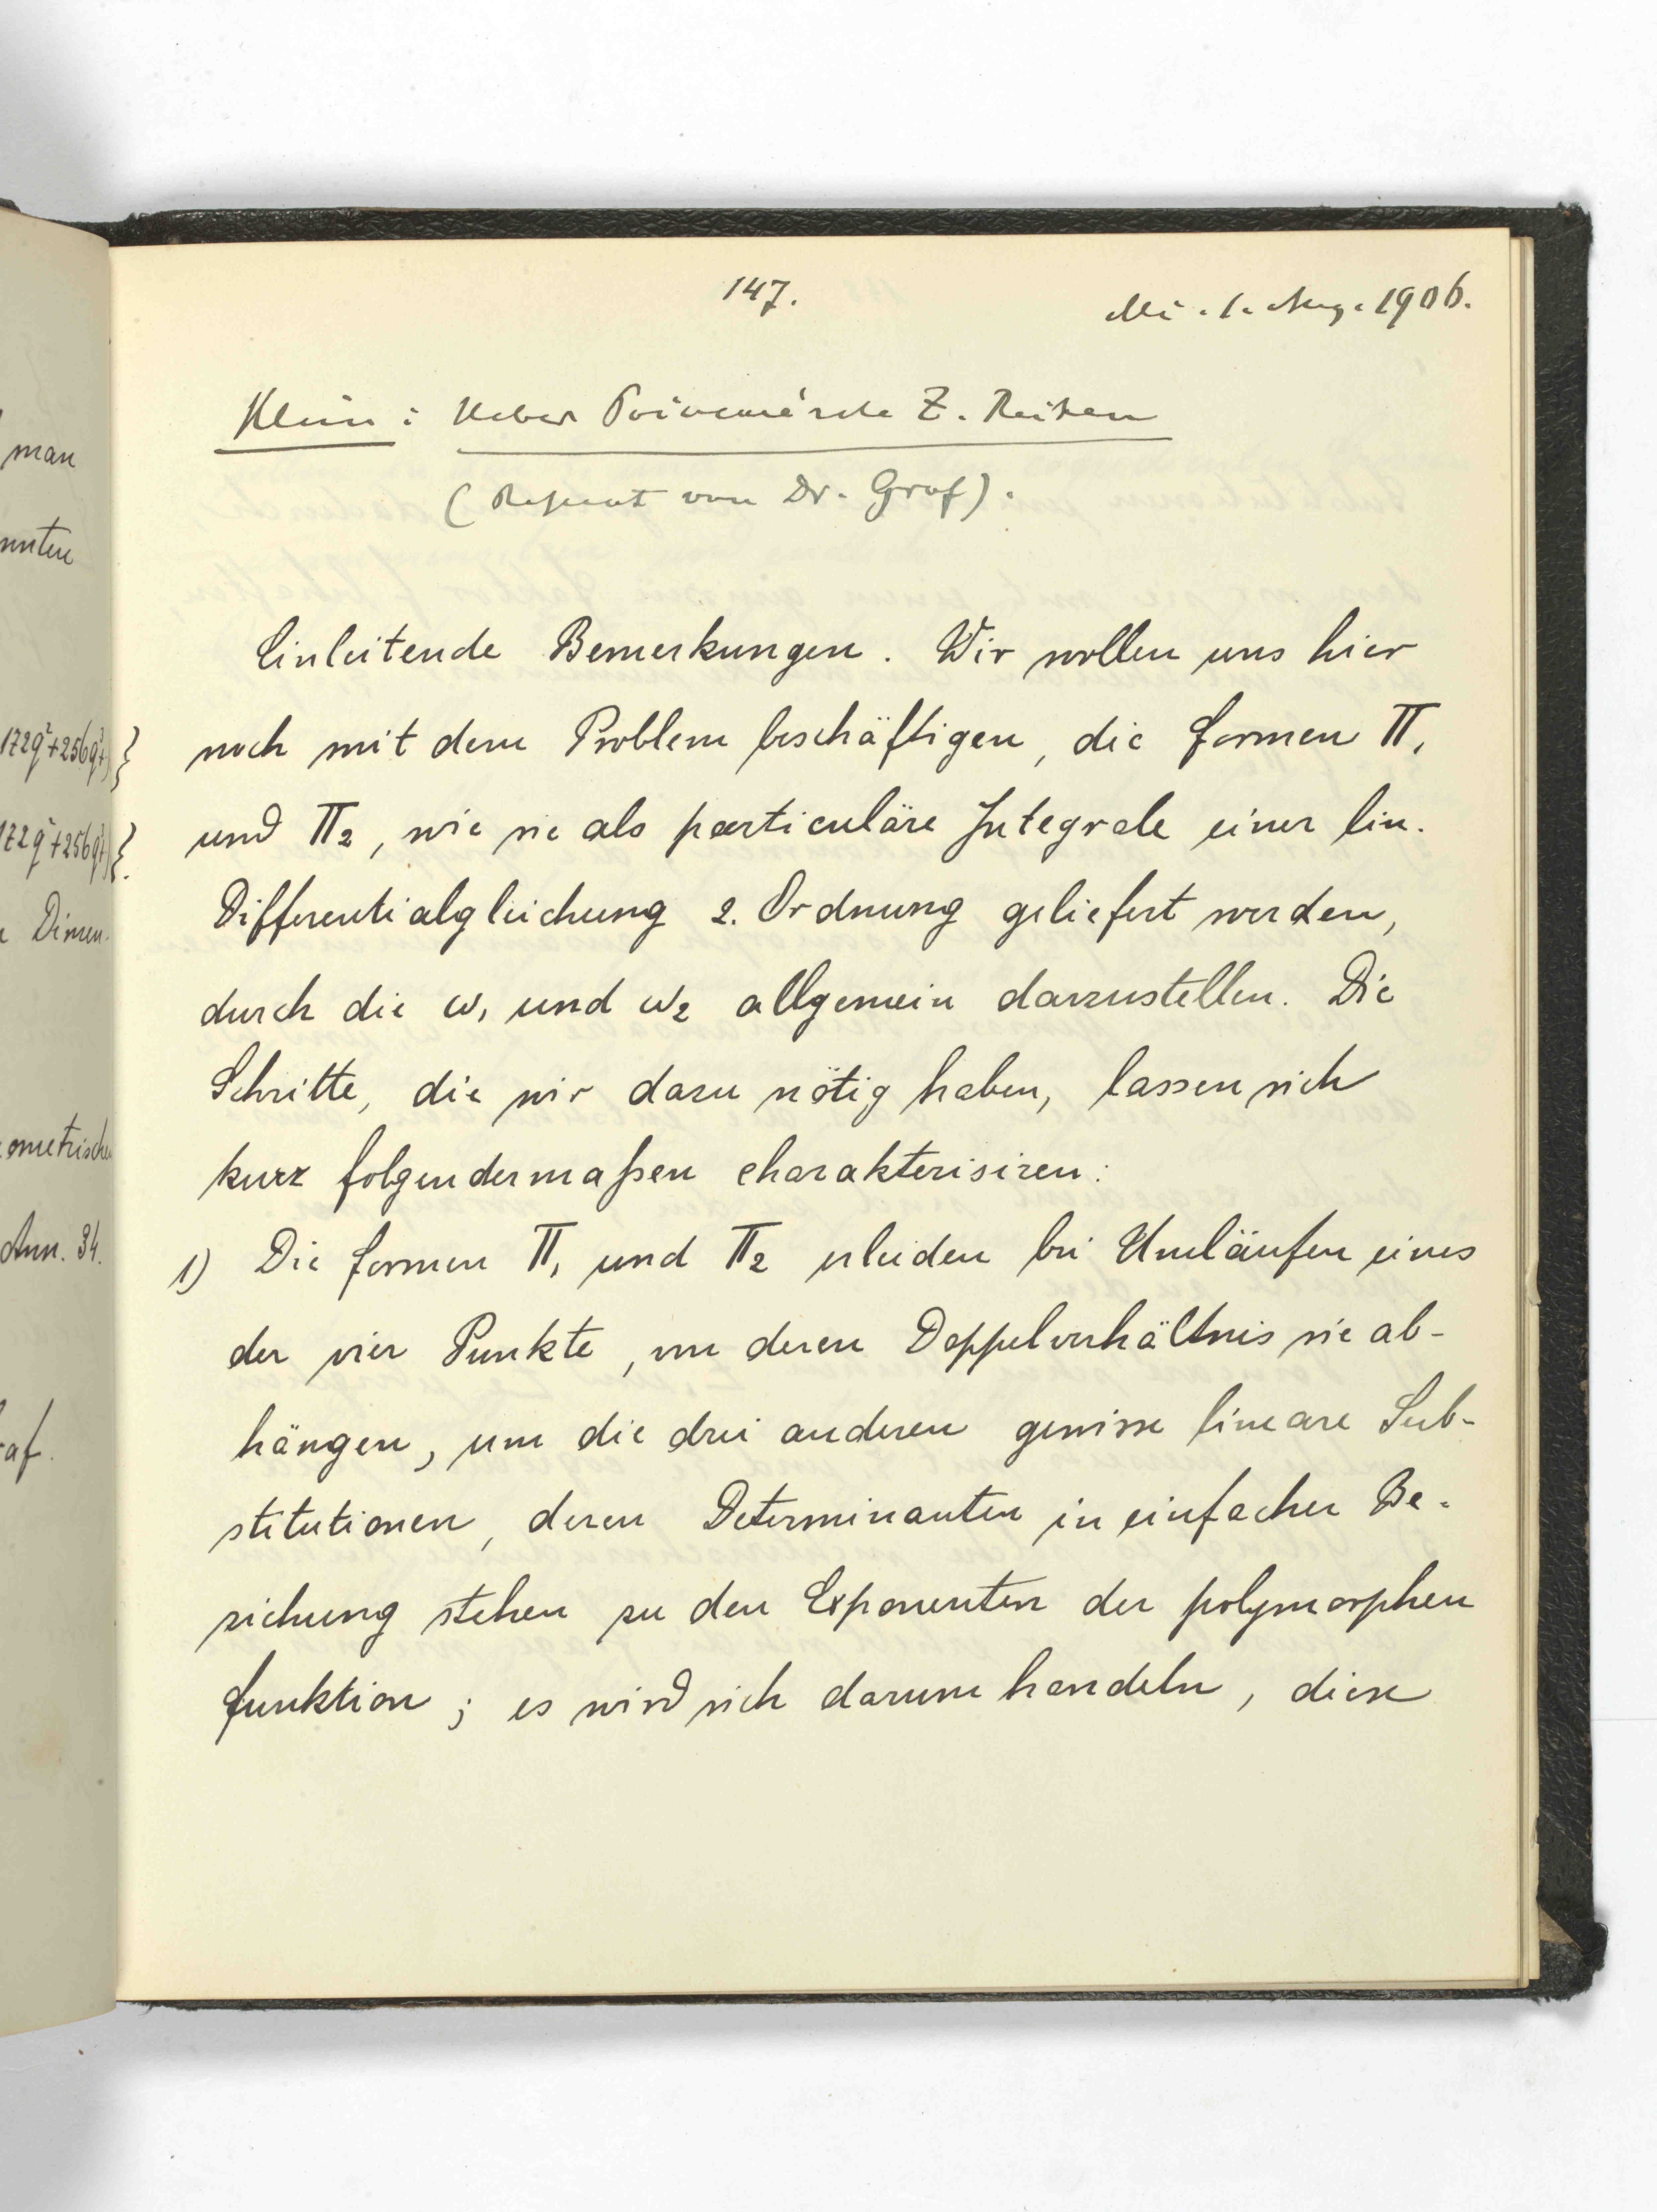 man
nnten
172q²+256q³+)}
172q²+256q³+)}.
Dimen-
ometrische
Ann. 34.
af.
147.
Mi. 1. Aug. 1906.
Klein: Ueber Poincaré'sche Z. Reihen
(Referat von Dr. Graf).
Einleitende Bemerkungen. Wir wollen uns hier
noch mit dem Problem beschäftigen, die Formen Π₁
und Π₂, wie sie als particuläre Integrale einer lin.
Differentialgleichung 2. Ordnung geliefert werden,
durch die ω₁ und ω₂ allgemein darzustellen. Die
Schritte, die wir dazu nötig haben, lassen sich
kurz folgendermaßen charakterisiren:
1) Die Formen Π₁ und Π₂ erleiden bei Umläufen eines
der vier Punkte, von deren Doppelverhältnis sie ab-
hängen, um die drei anderen gewisse lineare Sub-
stitutionen, deren Determinanten in einfacher Be-
ziehung stehen zu den Exponenten der polymorphen
Funktion; es wird sich darum handeln, diese